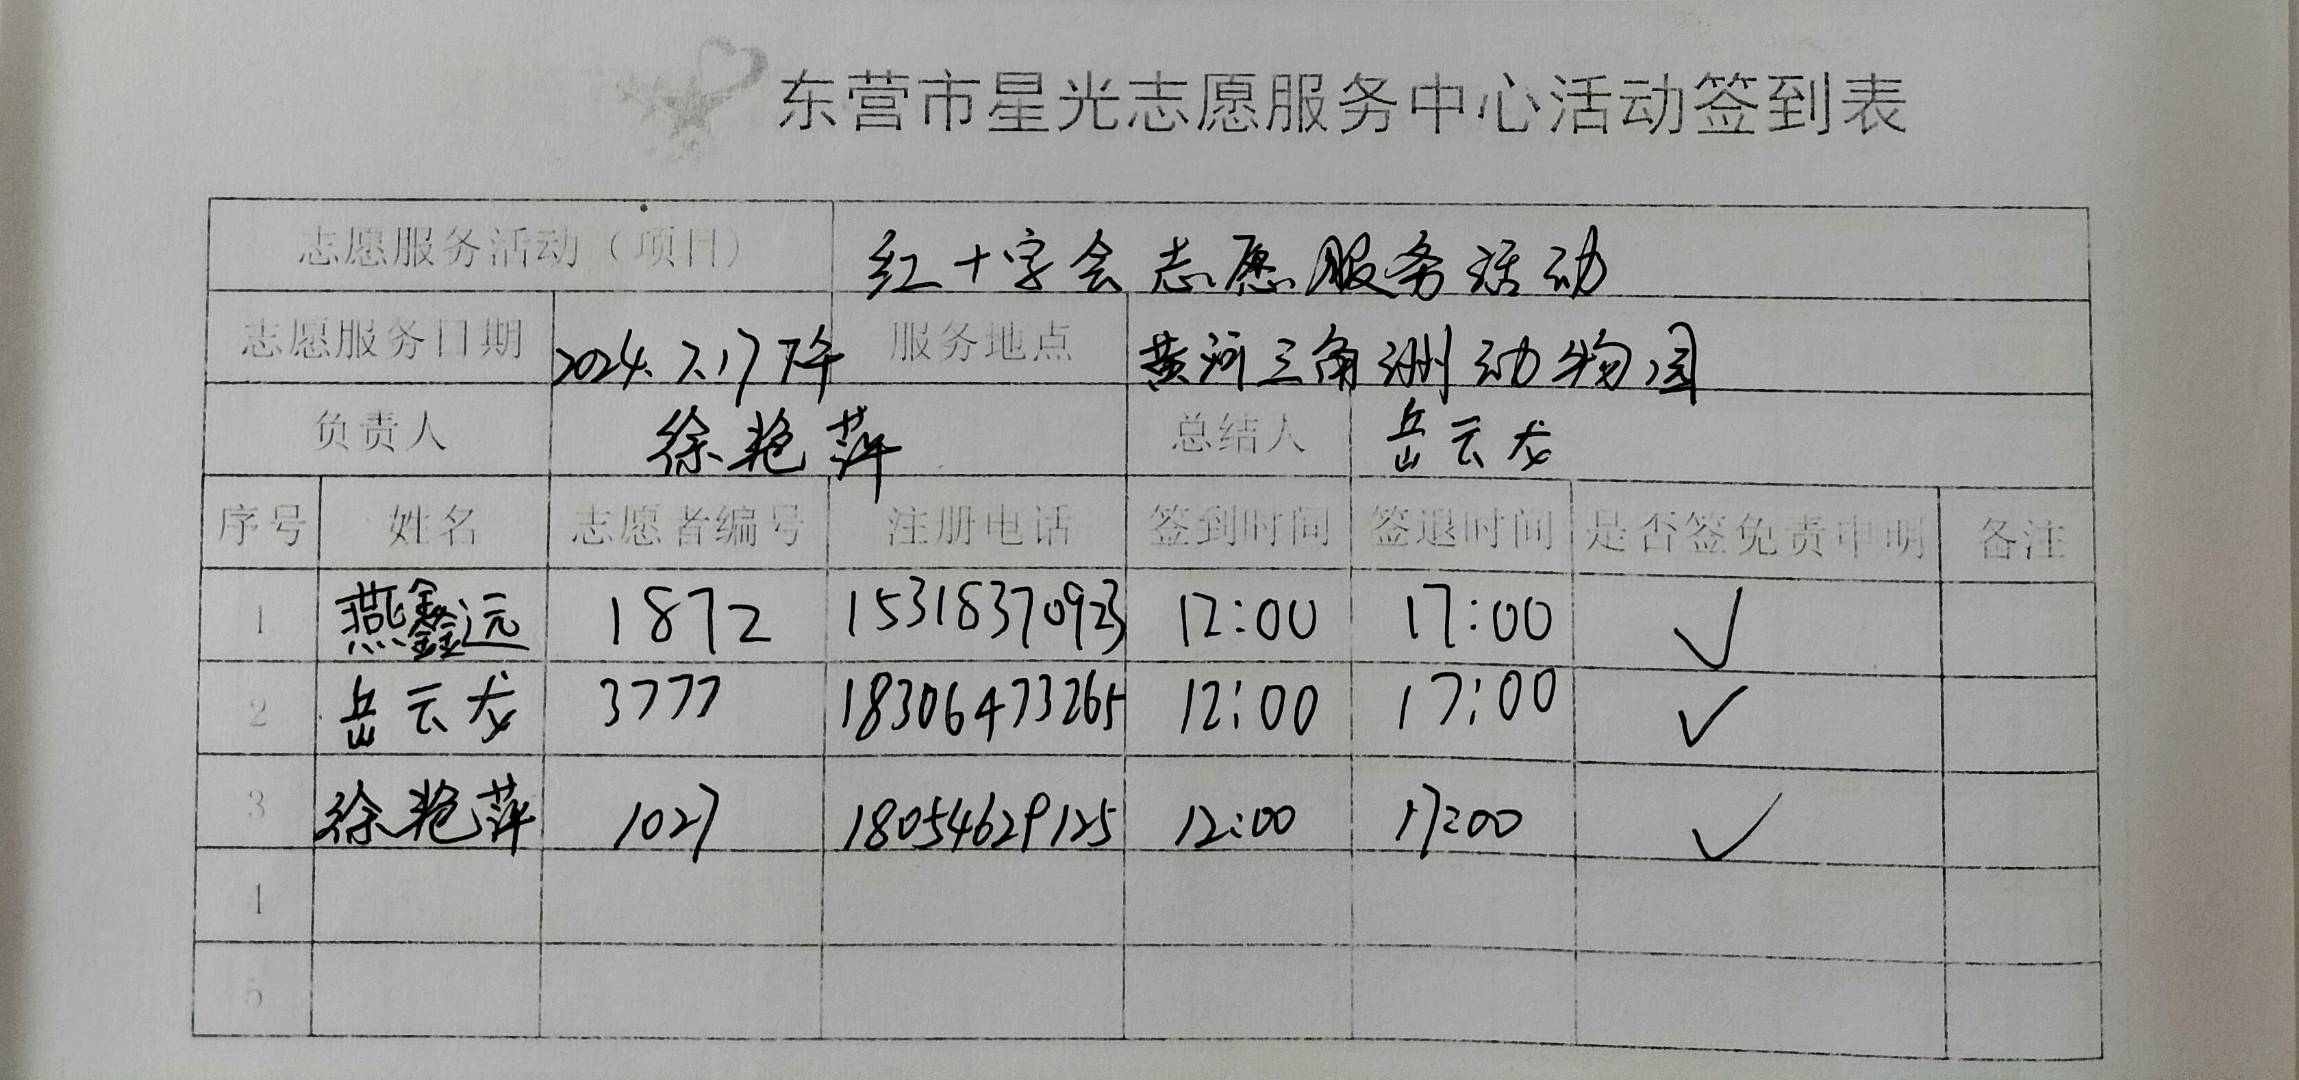 东营市星光志愿服务中心活动签到表
志愿服务活动（项目） 红十字会志愿服务活动
志愿服务日期 2024.7.17下午 服务地点 黄河三角洲动物园
负责人 徐艳萍 总结人 岳云龙
序号 姓名 志愿者编号 注册电话 签到时间 签退时间 是否签免责申明 备注
1 燕鑫远 1872 15318370923 12:00 17:00 ✓
2 岳云龙 3777 18306473265 12:00 17:00 ✓
3 徐艳萍 1027 18054629125 12:00 17:00 ✓
4
5